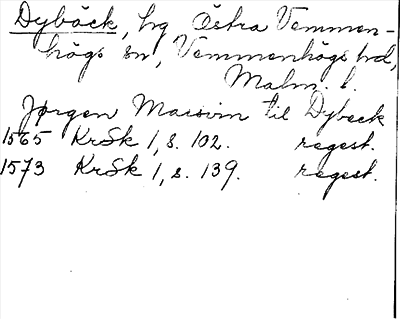 Dybäck, hg Östra Vemmen-
högs sn, Vemmenhögs hd,
Malm. l.
Jørgen Marsvin til Dybeck
1565 KrSk 1, s. 102. regest.
1573 KrSk 1, s. 139. regest.